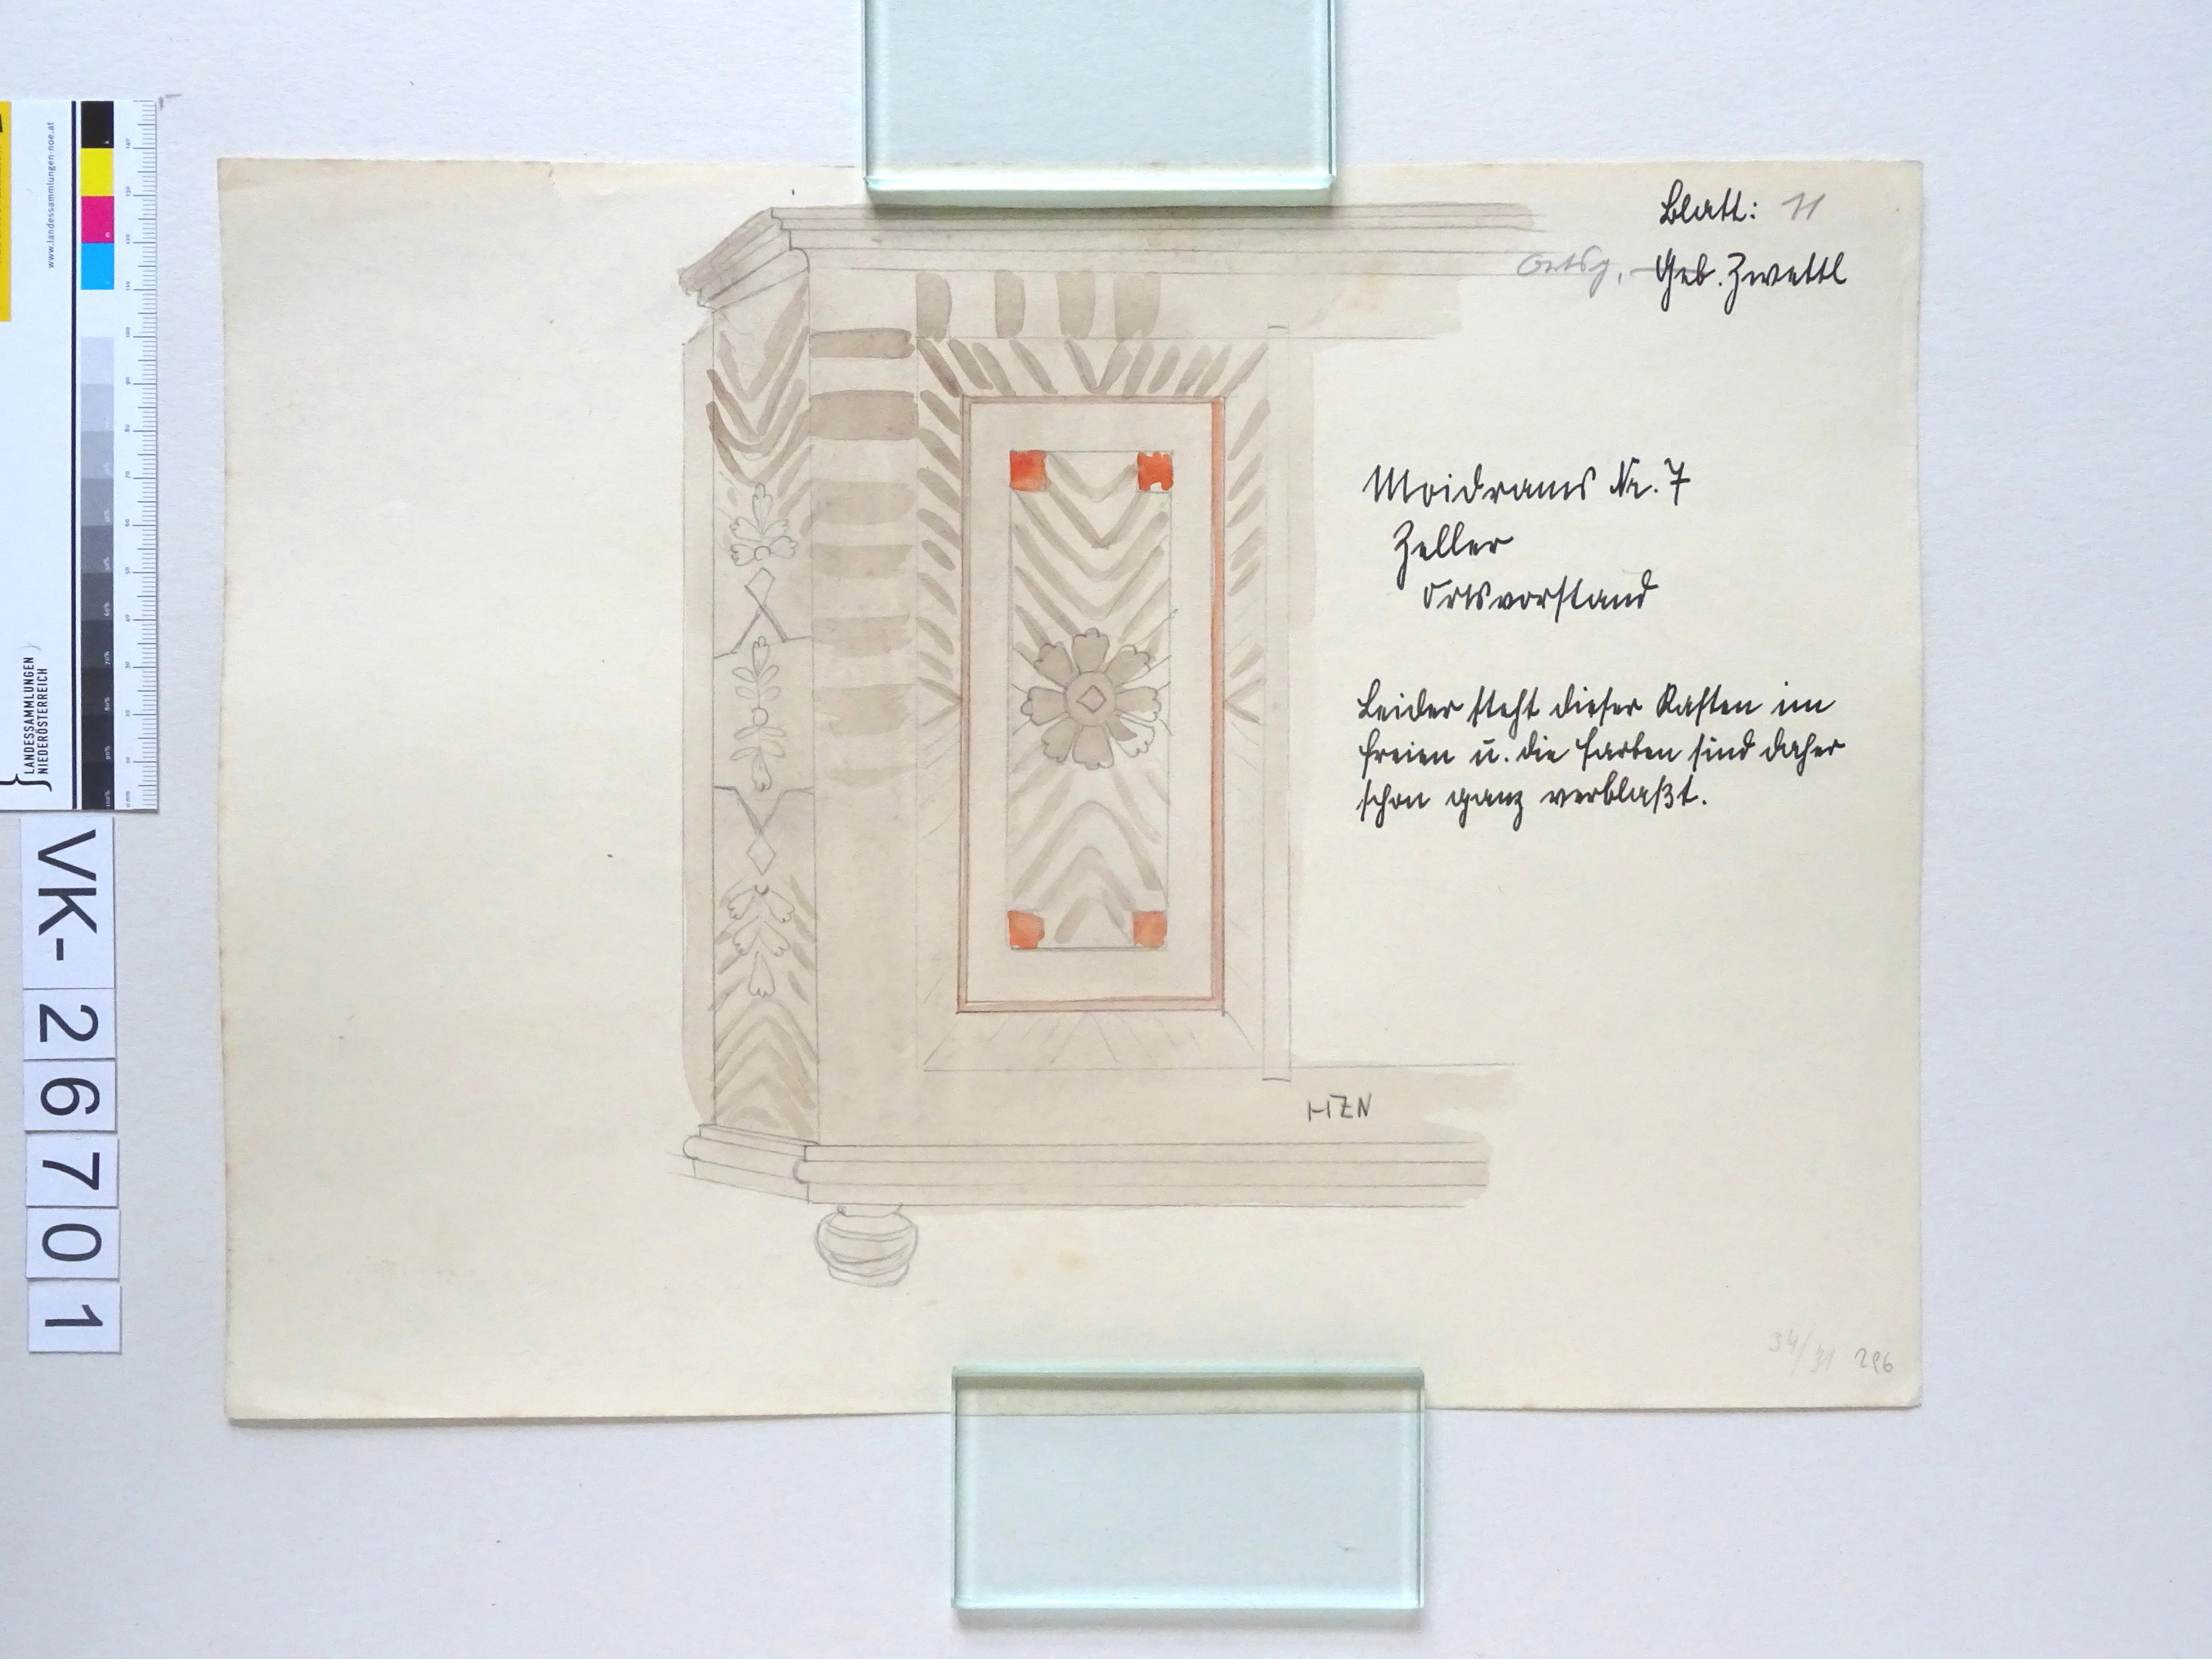 Blatt: 11
Ortsg. Geb. Zwettl
Moidrams Nr. 7
Zeller
Ortsvorstand
Leider steht dieser Kasten im
freien u. die Farben sind daher
schon ganz verblaßt.
HZN
34/31 296
www.landessammlungen-noe.at
LANDESSAMMLUNGEN
NIEDERÖSTERREICH
VK-26701